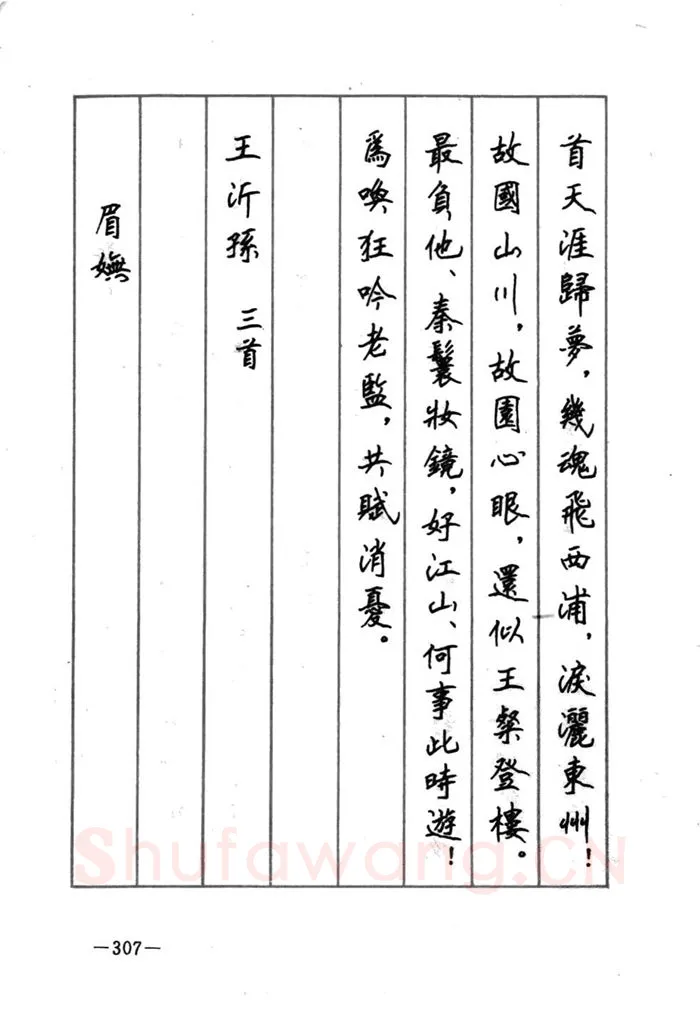 首天涯歸夢，幾魂飛西浦，淚灑東州！
故國山川，故園心眼，還似王粲登樓。
最負他、秦鬟妝鏡，好江山、何事此時遊！
爲喚狂吟老監，共賦消憂。
王沂孫 三首
眉嫵
Shufawang.CN
—307—